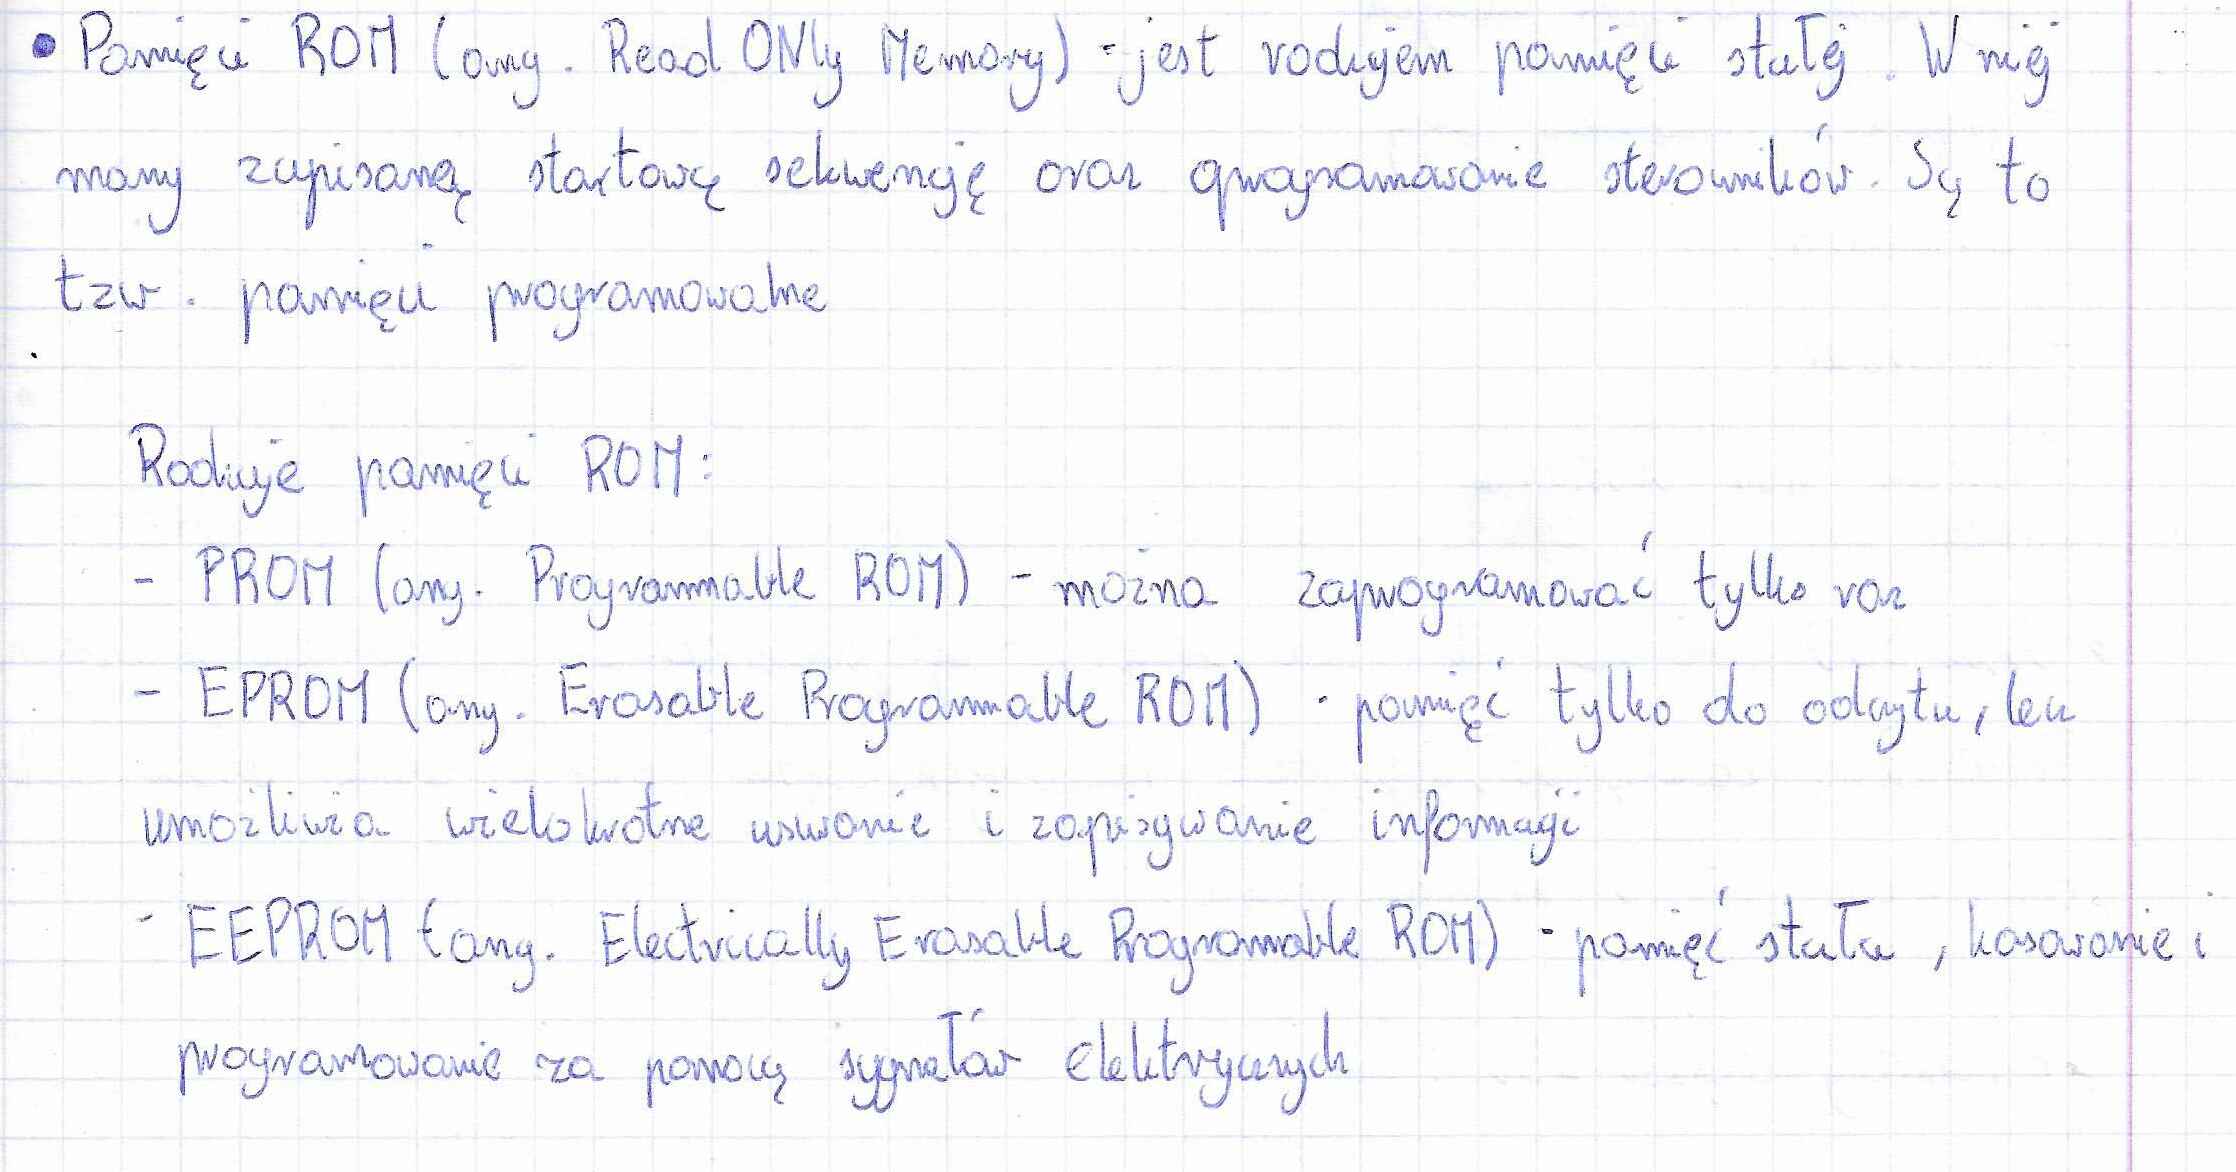 • Pamięci ROM (ang. Read ONly Memory) - jest rodzajem pamięci stałej. W niej
mamy zapisaną startową sekwencję oraz oprogramowanie sterowników. Są to
tzw. pamięci programowalne
Rodzaje pamięci ROM:
- PROM (ang. Programmable ROM) - można zaprogramować tylko raz
- EPROM (ang. Erasable Programmable ROM) - pamięć tylko do odczytu, lecz
umożliwia wielokrotne usuwanie i zapisywanie informacji
- EEPROM (ang. Electrically Erasable Programmable ROM) - pamięć stała, kasowanie i
programowanie za pomocą sygnałów elektrycznych